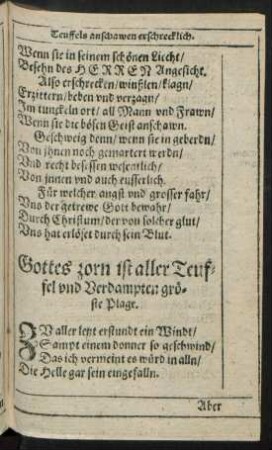 Teuffels anschawen erschrecklich.
Wenn sie in seinem schönen Liecht/
Besehn des HERREN Angesicht.
Also erschrecken/winßlen/klagn/
Erzittern/beben vnd verzagn/
Im tunckeln ort/all Mann vnd Frawn/
Wenn sie die bösen Geist anschawn.
Geschweig denn/wenn sie in geberdn/
Von jhnen noch gemartert werdn/
Vnd recht besessen wesentlich/
Von innen vnd auch eusserlich.
Für welcher angst vnd grosser fahr/
Vns der getrewe Gott bewahr/
Durch Christum/der von solcher glut/
Vns hat erlöset durch sein Blut.
Gottes zorn ist aller Teuf-
fel vnd Verdampten grö-
ste Plage.
ZV aller letzt erstundt ein Windt/
Sampt einem donner so geschwind/
Das ich vermeint es würd in alln/
Die Helle gar sein eingefalln.
Aber